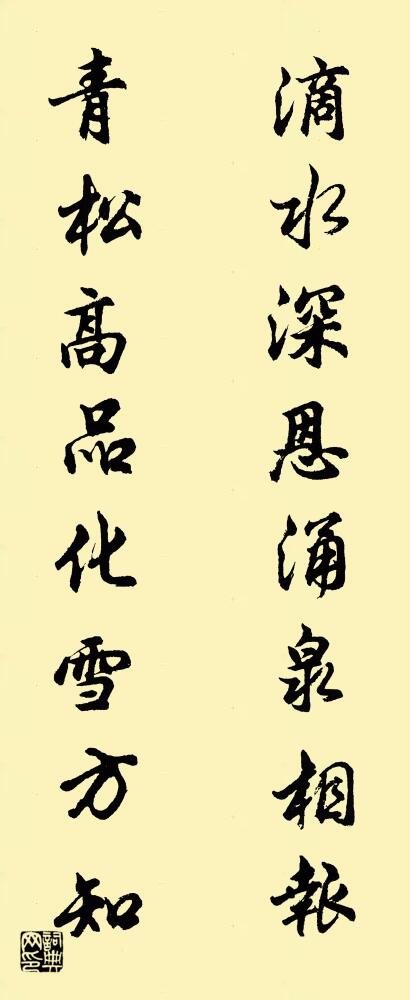 滴水深恩涌泉相報
青松高品化雪方知
詞典网印